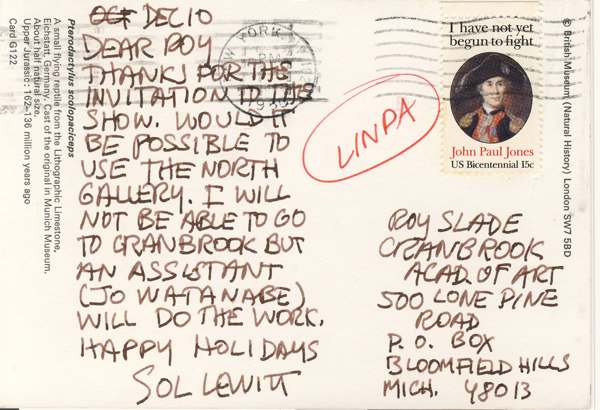 OCT DEC 10
DEAR ROY
THANKS FOR THE
INVITATION TO THE
SHOW. WOULD IT
BE POSSIBLE TO
USE THE NORTH
GALLERY. I WILL
NOT BE ABLE TO GO
TO CRANBROOK BUT
AN ASSISTANT
(JO WATANABE)
WILL DO THE WORK.
HAPPY HOLIDAYS
SOL LEWITT
LINDA
ROY SLADE
CRANBROOK
ACAD. OF ART
500 LONE PINE
ROAD
P.O. BOX
BLOOMFIELD HILLS
MICH. 48013
I have not yet
begun to fight
John Paul Jones
US Bicentennial 15c
YORK
Pterodactylus scolopaciceps
A small flying reptile from the Lithographic Limestone,
Eichstatt, Germany. Cast of the original in Munich Museum.
About half natural size.
Upper Jurassic: 162–136 million years ago
Card G122
© British Museum (Natural History) London SW7 5BD